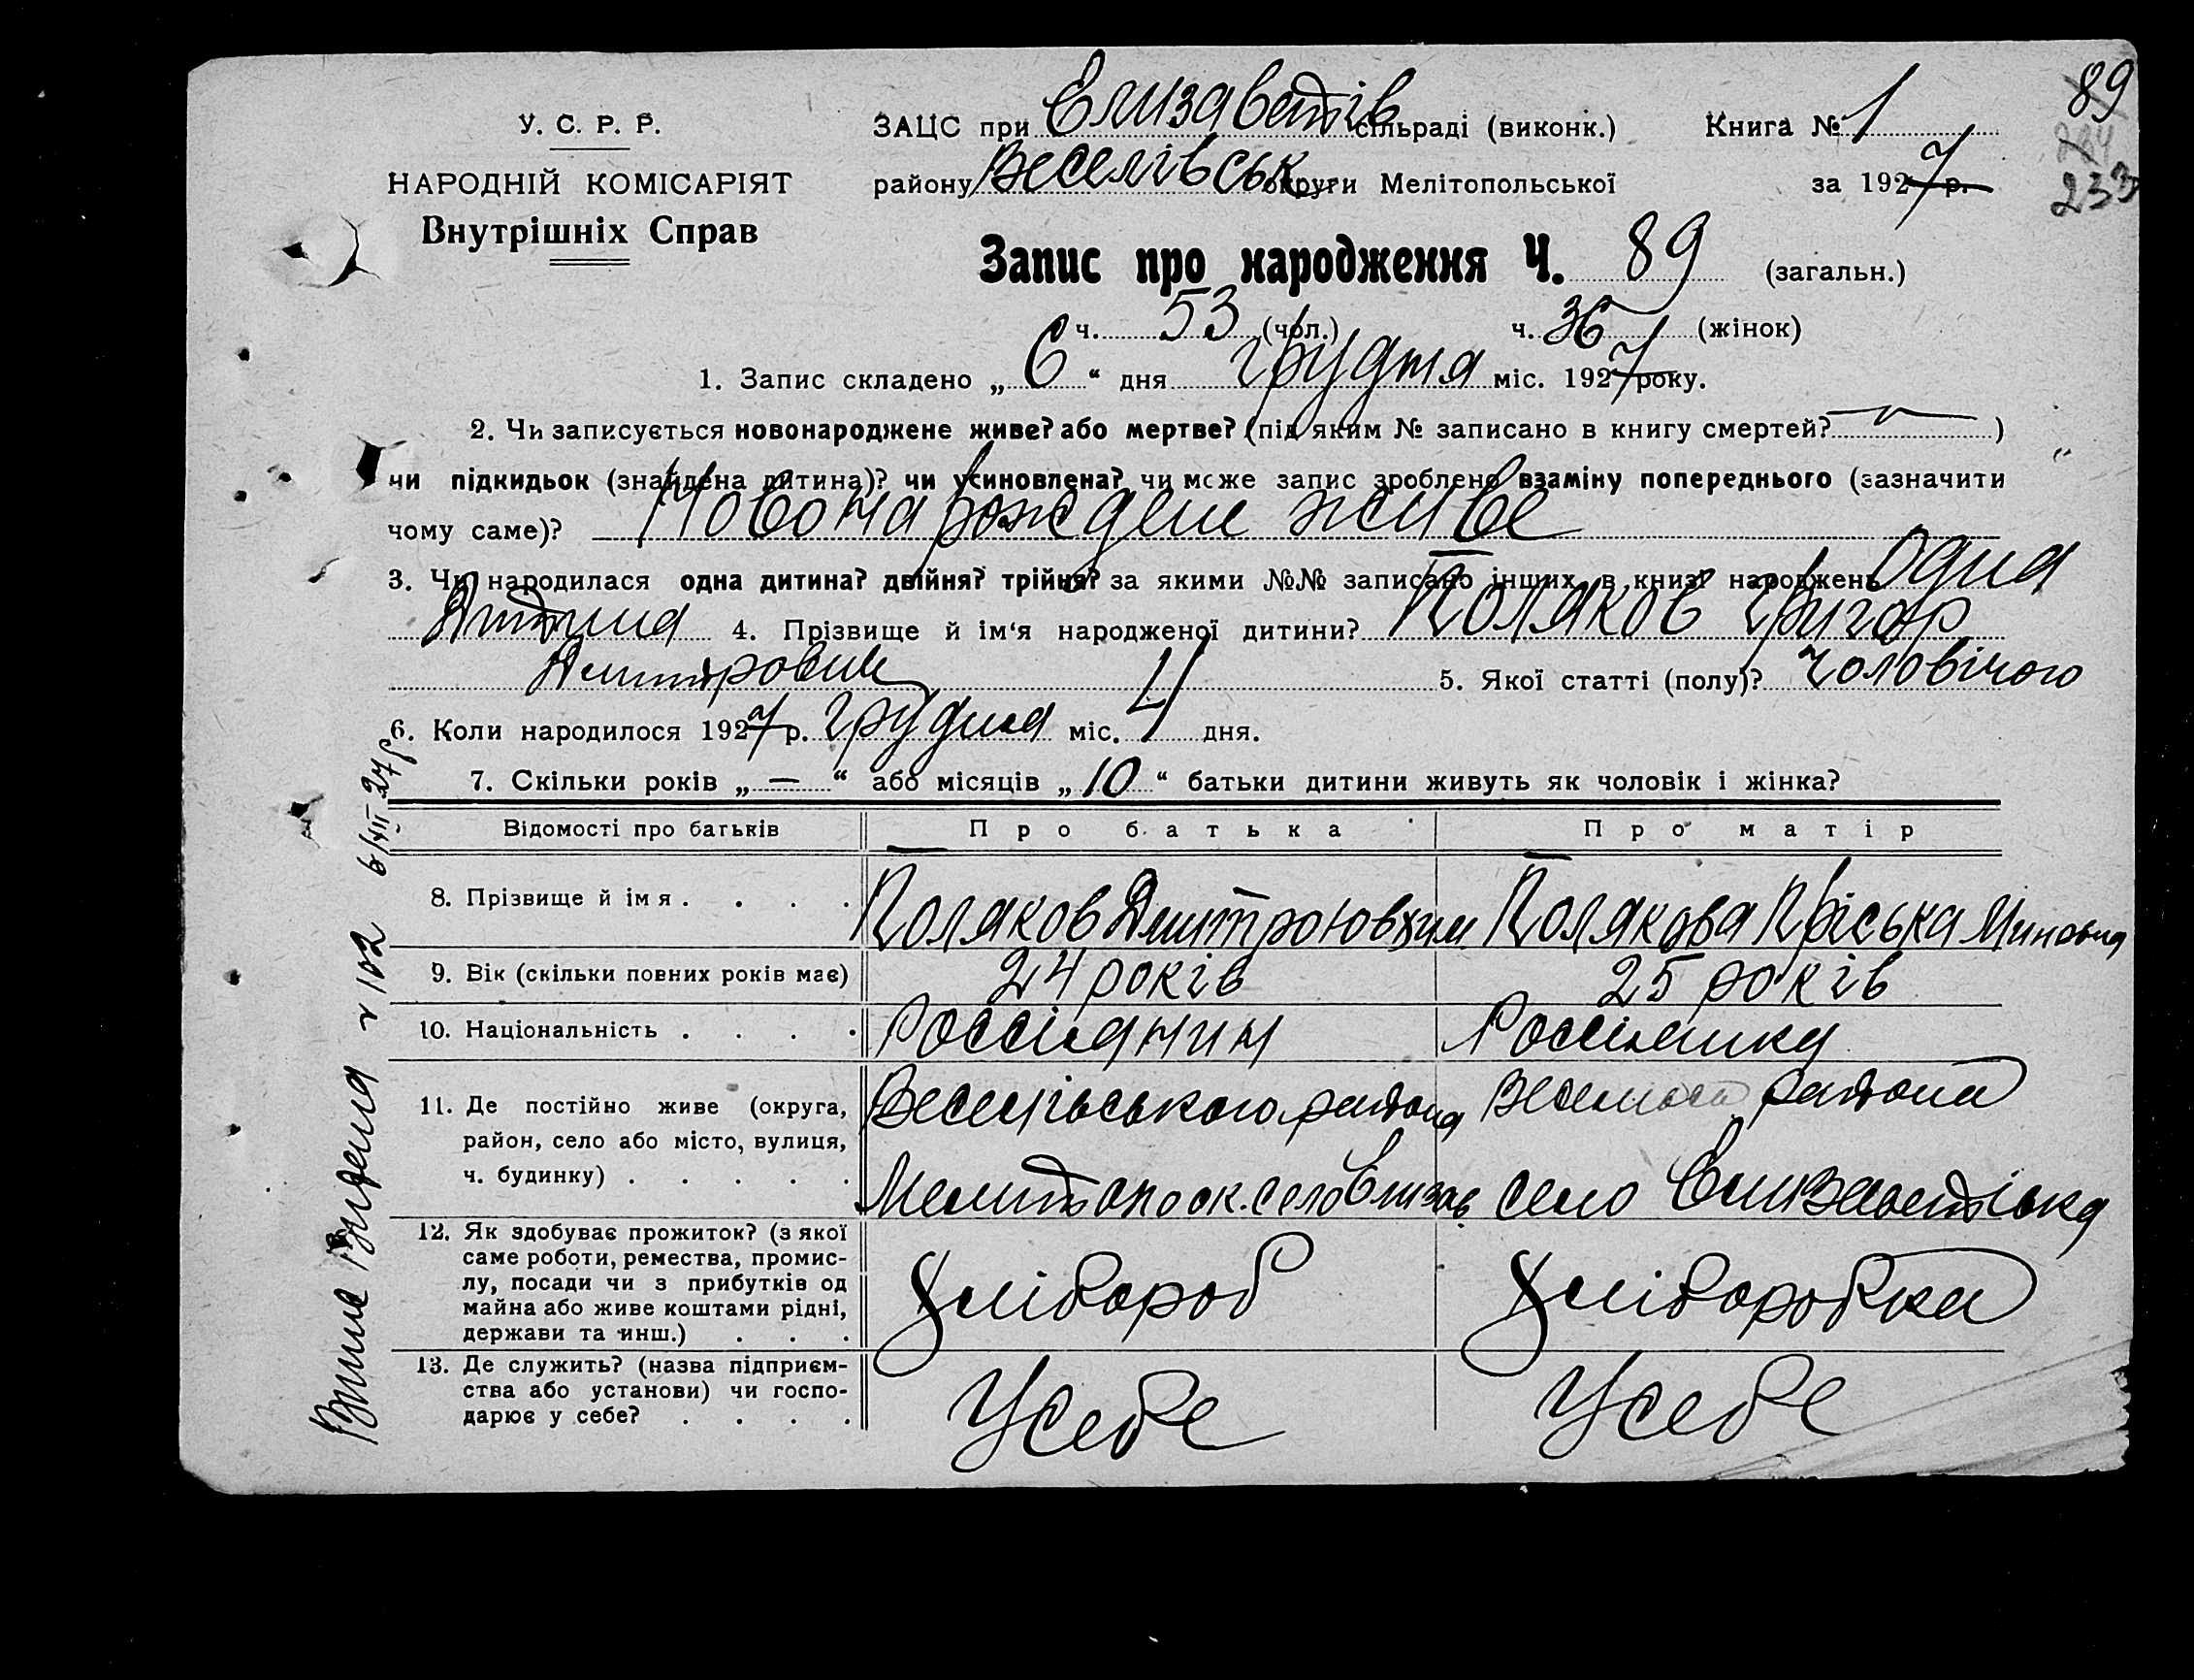 89
224
233
У. С. Р. Р.
НАРОДНІЙ КОМІСАРІЯТ
Внутрішніх Справ
ЗАЦС при Єлизаветів сільраді (виконк.) Книга № 1
району Веселівськ округи Мелітопольської за 1927 р.
Запис про народження Ч. 89 (загальн.)
ч. 53 (чол.) ч. 36 (жінок)
1. Запис складено „ 6 “ дня грудня міс. 1927 року.
2. Чи записується новонароджене живе? або мертве? (під яким № записано в книгу смертей? )
чи підкидьок (знайдена дитина)? чи усиновлена? чи може запис зроблено взаміну попереднього (зазначити
чому саме)? Новонарождене живе
3. Чи народилася одна дитина? двійня? трійня? за якими №№ записано інших в книзі народжень Одна
Дитина 4. Прізвище й ім‘я народженої дитини? Поляков Григор
Дмитрович 5. Якої статті (полу)? Чоловічого
6. Коли народилося 1927 р. грудня міс. 4 дня.
7. Скільки років „ — “ або місяців „ 10 “ батьки дитини живуть як чоловік і жінка?
Відомості про батьків Про батька Про матір
8. Прізвище й імя . . . . Поляков Дмитро Полякова Пріська
9. Вік (скільки повних років має) 24 років 25 років
10. Національність . . . . Россіянин Россіянка
11. Де постійно живе (округа, Веселівського района района
район, село або місто, вулиця,
ч. будинку) . . . . . Мелитопо ок. село Єлизав село Єлизаветівка
12. Як здобуває прожиток? (з якої
саме роботи, ремества, промис-
лу, посади чи з прибутків од Хлібороб Хліборобка
майна або живе коштами рідні,
держави та инш.) . . .
13. Де служить? (назва підприєм-
ства або установи) чи госпо- У себе У себе
дарює у себе? . . . .
видена 102 6/XII 27 р